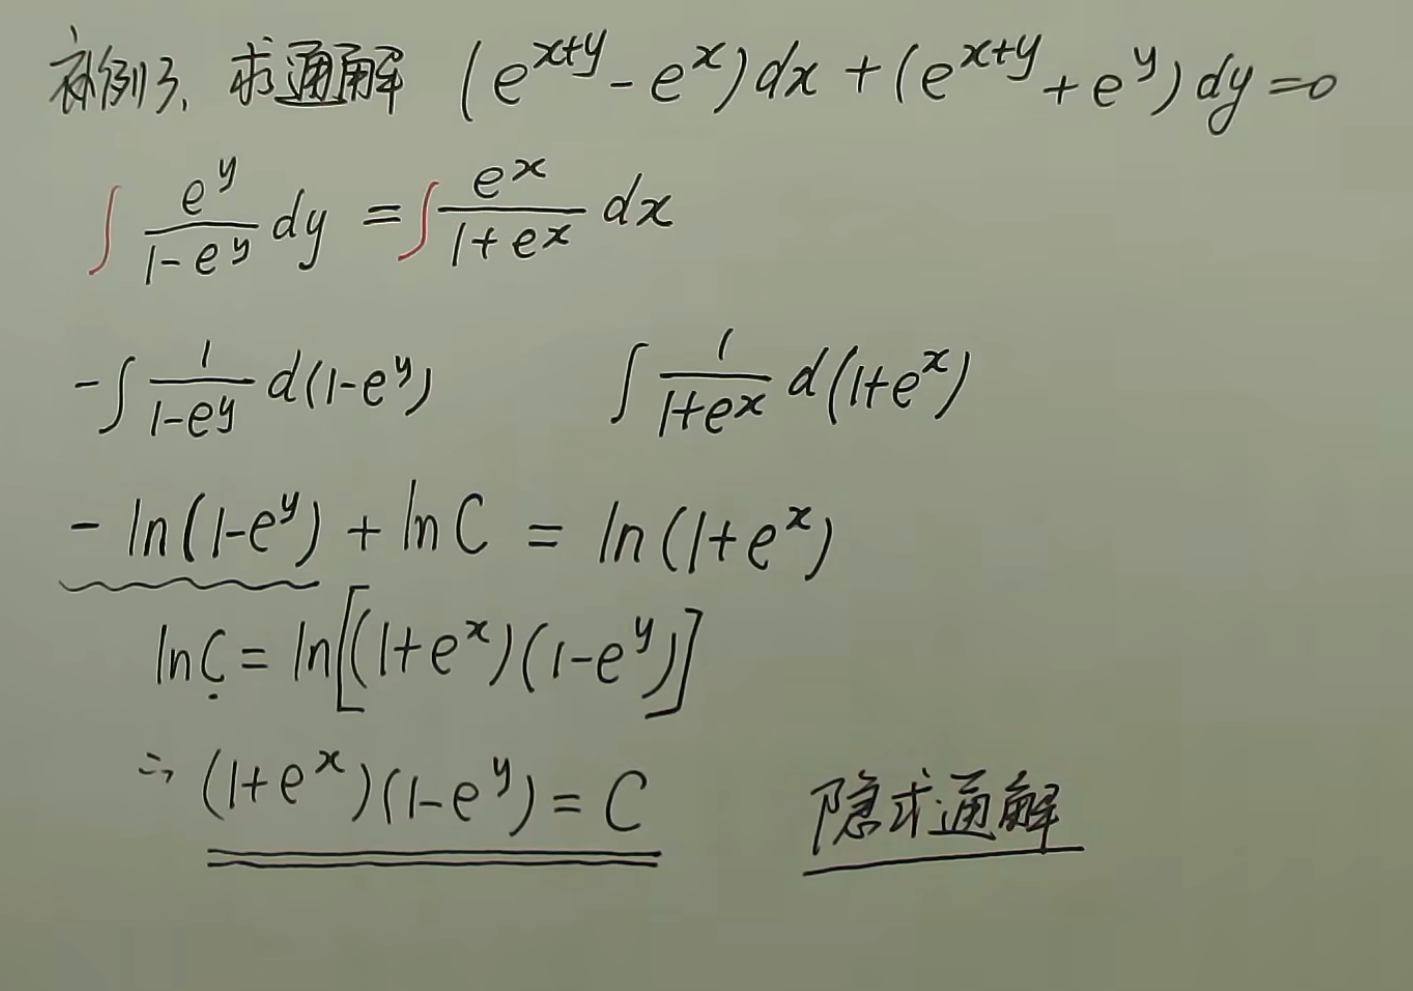 补例3、求通解 (e^{x+y} - e^x)dx + (e^{x+y} + e^y)dy = 0
∫ \frac{e^y}{1-e^y} dy = ∫ \frac{e^x}{1+e^x} dx
-∫ \frac{1}{1-e^y} d(1-e^y)    ∫ \frac{1}{1+e^x} d(1+e^x)
- ln(1-e^y) + ln C = ln(1+e^x)
ln C = ln[(1+e^x)(1-e^y)]
∴ (1+e^x)(1-e^y) = C    隐式通解